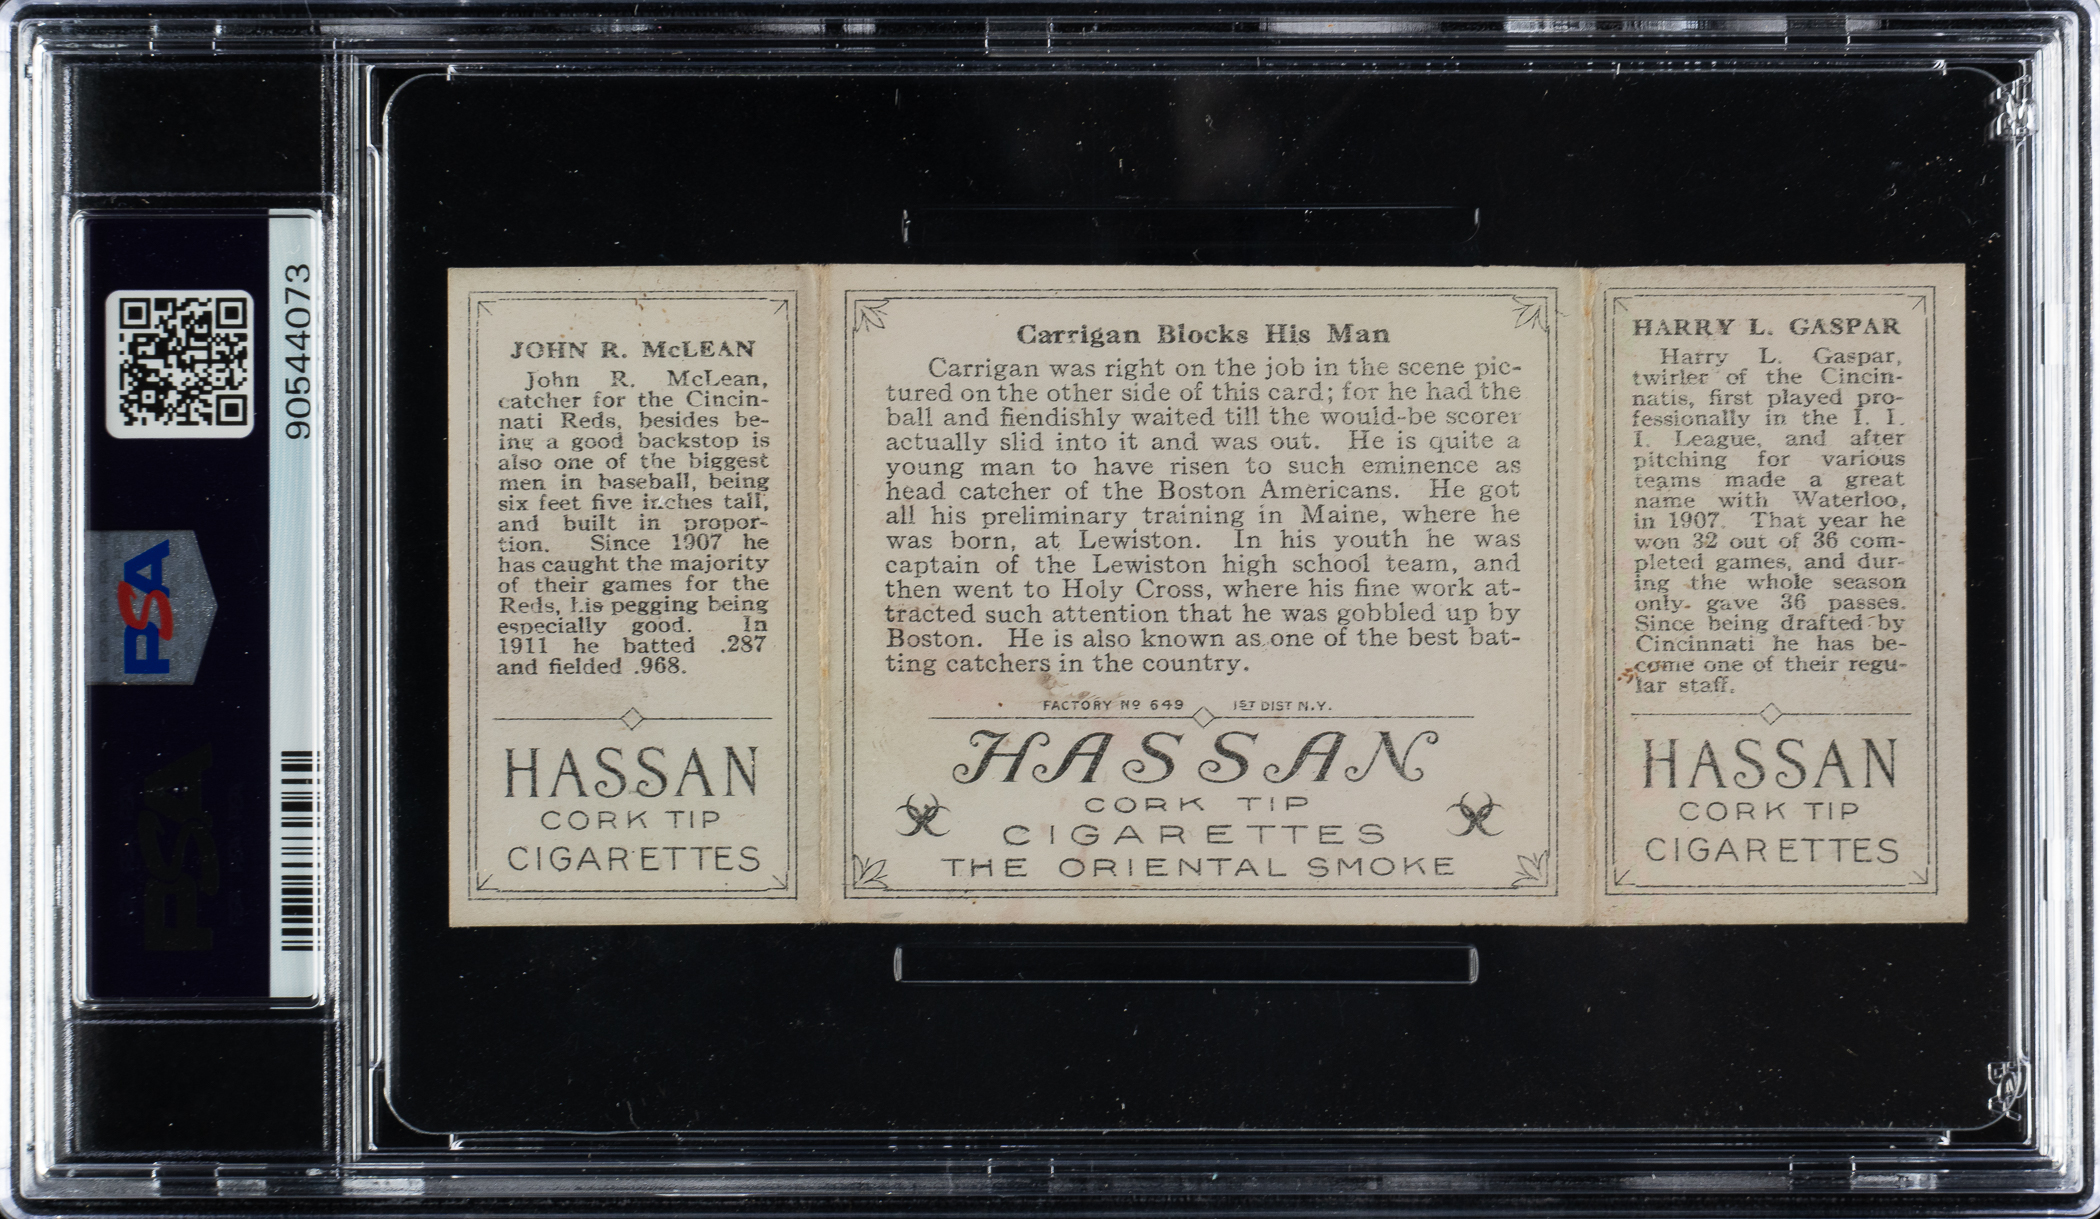 90544073
PSA
PSA
JOHN R. McLEAN
John R. McLean,
catcher for the Cincin-
nati Reds, besides be-
ing a good backstop is
also one of the biggest
men in baseball, being
six feet five inches tall,
and built in propor-
tion. Since 1907 he
has caught the majority
of their games for the
Reds, his pegging being
especially good. In
1911 he batted .287
and fielded .968.
HASSAN
CORK TIP
CIGARETTES
Carrigan Blocks His Man
Carrigan was right on the job in the scene pic-
tured on the other side of this card; for he had the
ball and fiendishly waited till the would-be scorer
actually slid into it and was out. He is quite a
young man to have risen to such eminence as
head catcher of the Boston Americans. He got
all his preliminary training in Maine, where he
was born, at Lewiston. In his youth he was
captain of the Lewiston high school team, and
then went to Holy Cross, where his fine work at-
tracted such attention that he was gobbled up by
Boston. He is also known as one of the best bat-
ting catchers in the country.
FACTORY Nº 649 1ST DIST N.Y.
HASSAN
CORK TIP
CIGARETTES
THE ORIENTAL SMOKE
HARRY L. GASPAR
Harry L. Gaspar,
twirler of the Cincin-
natis, first played pro-
fessionally in the I. I.
I. League, and after
pitching for various
teams made a great
name with Waterloo,
in 1907. That year he
won 32 out of 36 com-
pleted games, and dur-
ing the whole season
only gave 36 passes.
Since being drafted by
Cincinnati he has be-
come one of their regu-
lar staff.
HASSAN
CORK TIP
CIGARETTES